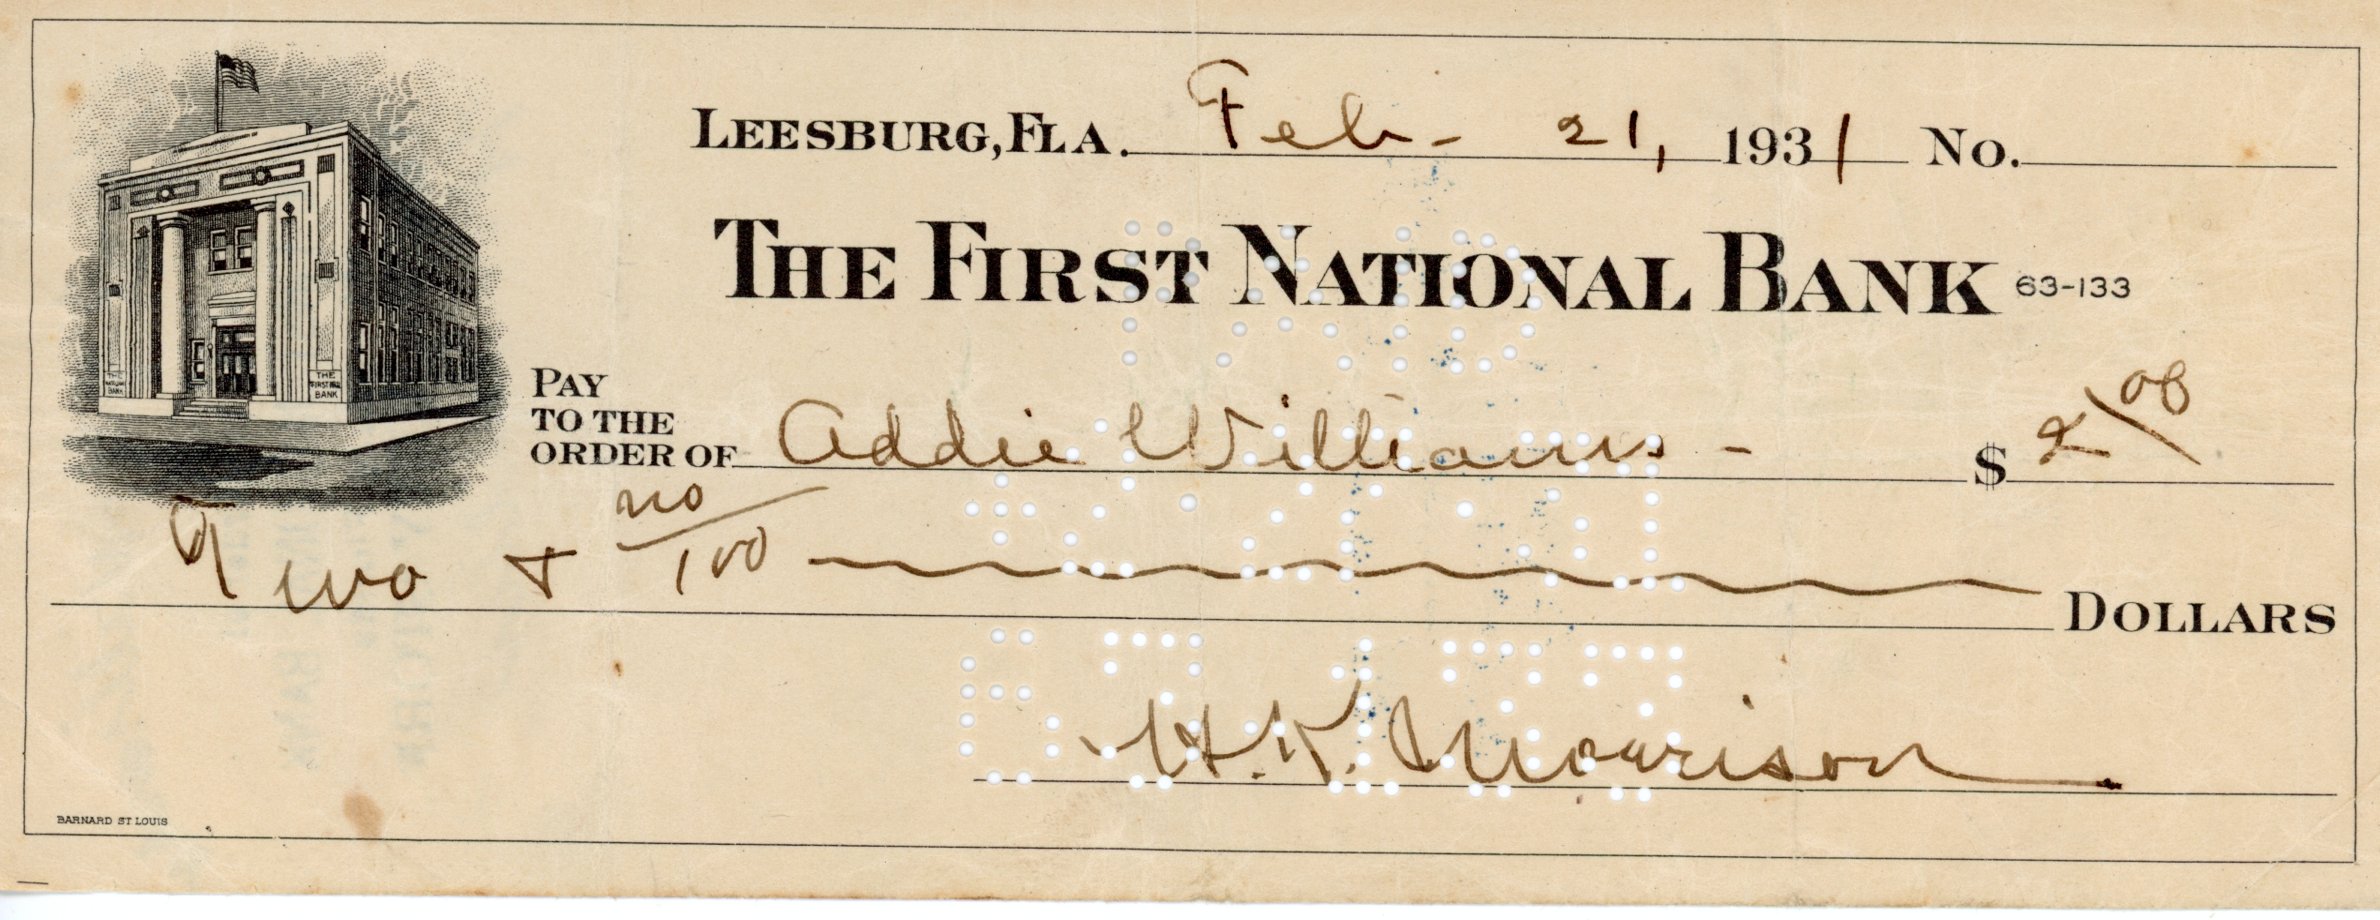 LEESBURG, FLA. Feb- 21, 1931 No.
THE FIRST NATIONAL BANK 63-133
PAID
PAY
TO THE
ORDER OF Addie Williams - $ 2/00
Two + no/100 DOLLARS
63-133
H.K. Morrison
THE
BANK
BARNARD ST LOUIS